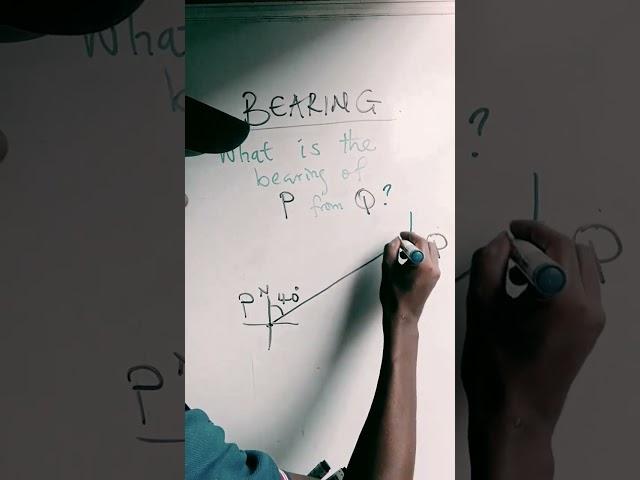 BEARING
What is the
bearing of
P from Q?
N
P 40°
Q